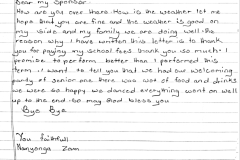 Dear my Sponsor
How are you over there. How is the weather let me
hope that you are fine and the weather is good on
my side and my family we are doing well. The
reason why I have written this letter is to thank
you for paying my school fees thank you so much. I
promise to perform better than I performed this
term. I want to tell you that we had our welcoming
party of senior one there was lot of food and drinks
we were so happy we danced everything went on well
up to the end. So may God bless you
Bye Bye
You faithfull
Zam